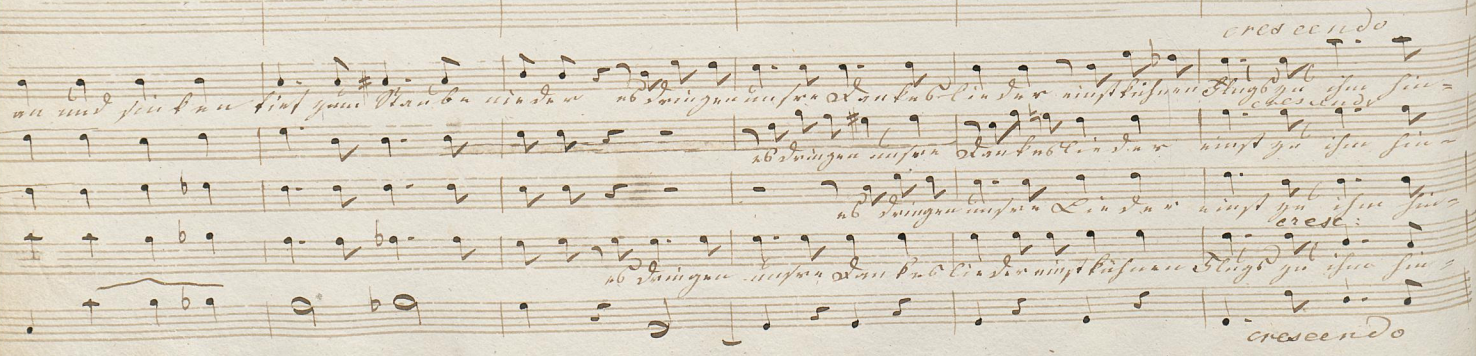 crescendo
an und sinken tief zum Staube nieder es dringen unsre Dankeslieder einst kühnen Flugs zu ihm hin-
crescendo
es dringen unsre Dankeslieder einst zu ihm hin-
es dringen unsre Lieder einst zu ihm hin-
cresc:
es dringen unsre Dankeslieder einst kühnen Flugs zu ihm hin-
crescendo